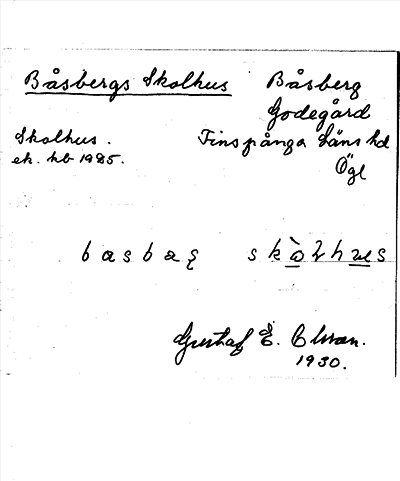 Båsbergs Skolhus
Båsberg
Godegård
Finspånga Läns hd
Ögl
Skolhus.
ek. kb 1925.
Gustaf E. Olsson.
1930.